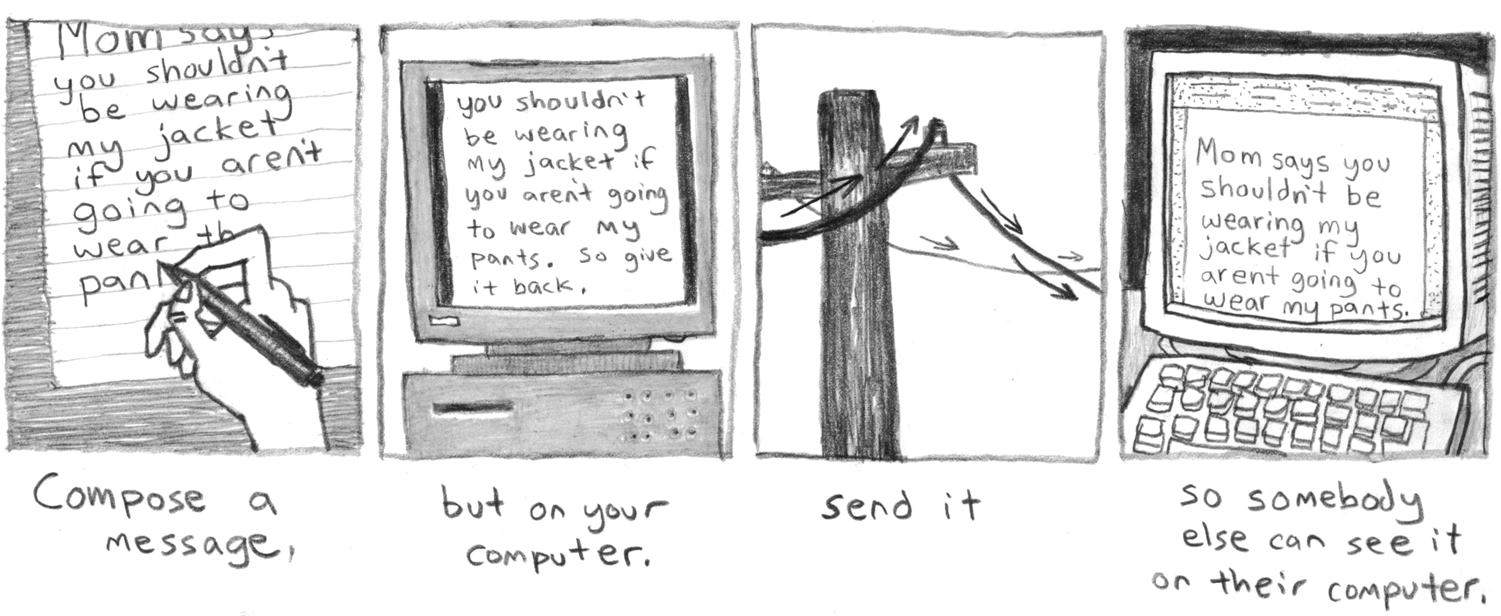 Mom says
you shouldn't
be wearing
my jacket
if you aren't
going to
wear th
pan
Compose a
message,
you shouldn't
be wearing
my jacket if
you aren't going
to wear my
pants. So give
it back.
but on your
computer.
send it
Mom says you
shouldn't be
wearing my
jacket if you
arent going to
wear my pants.
so somebody
else can see it
on their computer.